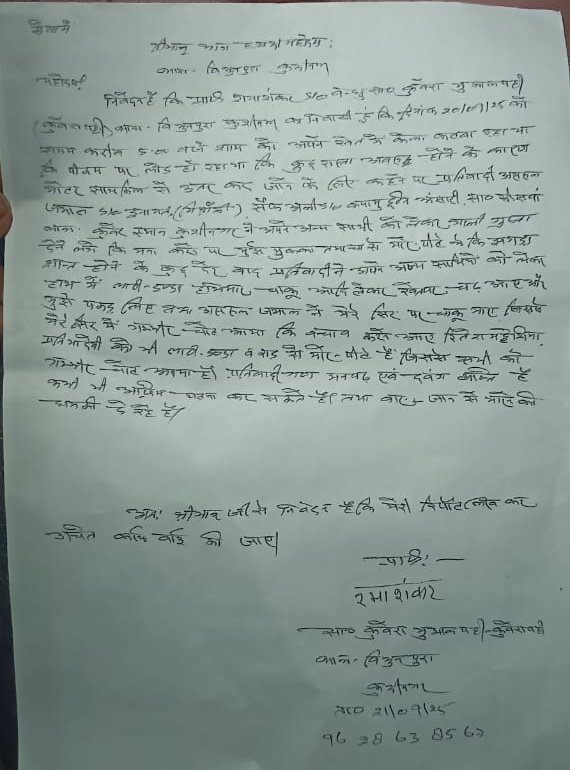 सेवामें
श्रीमान् थाना महोदय;
थाना- विशुनपुरा कुशीनगर
महोदय,
निवेदन है कि प्रार्थी रामाशंकर S/O सा० कुँवरा भुआलपट्टी
(कुँवरापट्टी) थाना- विशुनपुरा कुशीनगर का निवासी हूँ कि दिनांक 20/09/25 को
समय करीब 5:00 बजे शाम को अपने खेत के केला कटवा रहा था
कि पीकप पर लोड हो रहा था कि कुछ रास्ता अवरुद्ध होने के कारण
मोटर साइकिल से उतर कर जाने के लिए कहने पर प्रतिवादी असहल
जमाल S/O सैफ अली S/O अंसारी सा०
थाना- कुबेर स्थान कुशीनगर ने अपने अन्य साथी को लेकर गाली गुप्ता
देने लगे कि मना करने पर मुझे मुक्का से मारे पीटे कि झगड़ा
शान्त होने के कुछ देर बाद प्रतिवादी ने अपने अन्य साथियों को लेकर
हाथ में लाठी-डण्डा चाकू आदि लेकर चढ़ आए और
मुझे पकड़ लिए तथा असहल जमाल ने मेरे सिर पर चाकू मारा जिससे
मेरे सिर में गम्भीर चोट आया कि बचाव करने आए
को भी लाठी-डण्डा व राड से मारे पीटे है जिससे सभी को
गम्भीर चोट आया है। प्रतिवादीगण मनबढ़ एवं दबंग व्यक्ति है
कभी भी अप्रिय घटना कर सकते है। तथा जान से मारने की
धमकी दे रहे है।
अतः श्रीमान् जी से निवेदन है कि मेरी रिपोर्ट लिख कर
उचित कार्यवाही की जाए।
प्रार्थी:-
रमाशंकर
सा० कुँवरा भुआलपट्टी-कुँवरापट्टी
थाना- विशुनपुरा
कुशीनगर
21/09/25
96 28 63 85 67